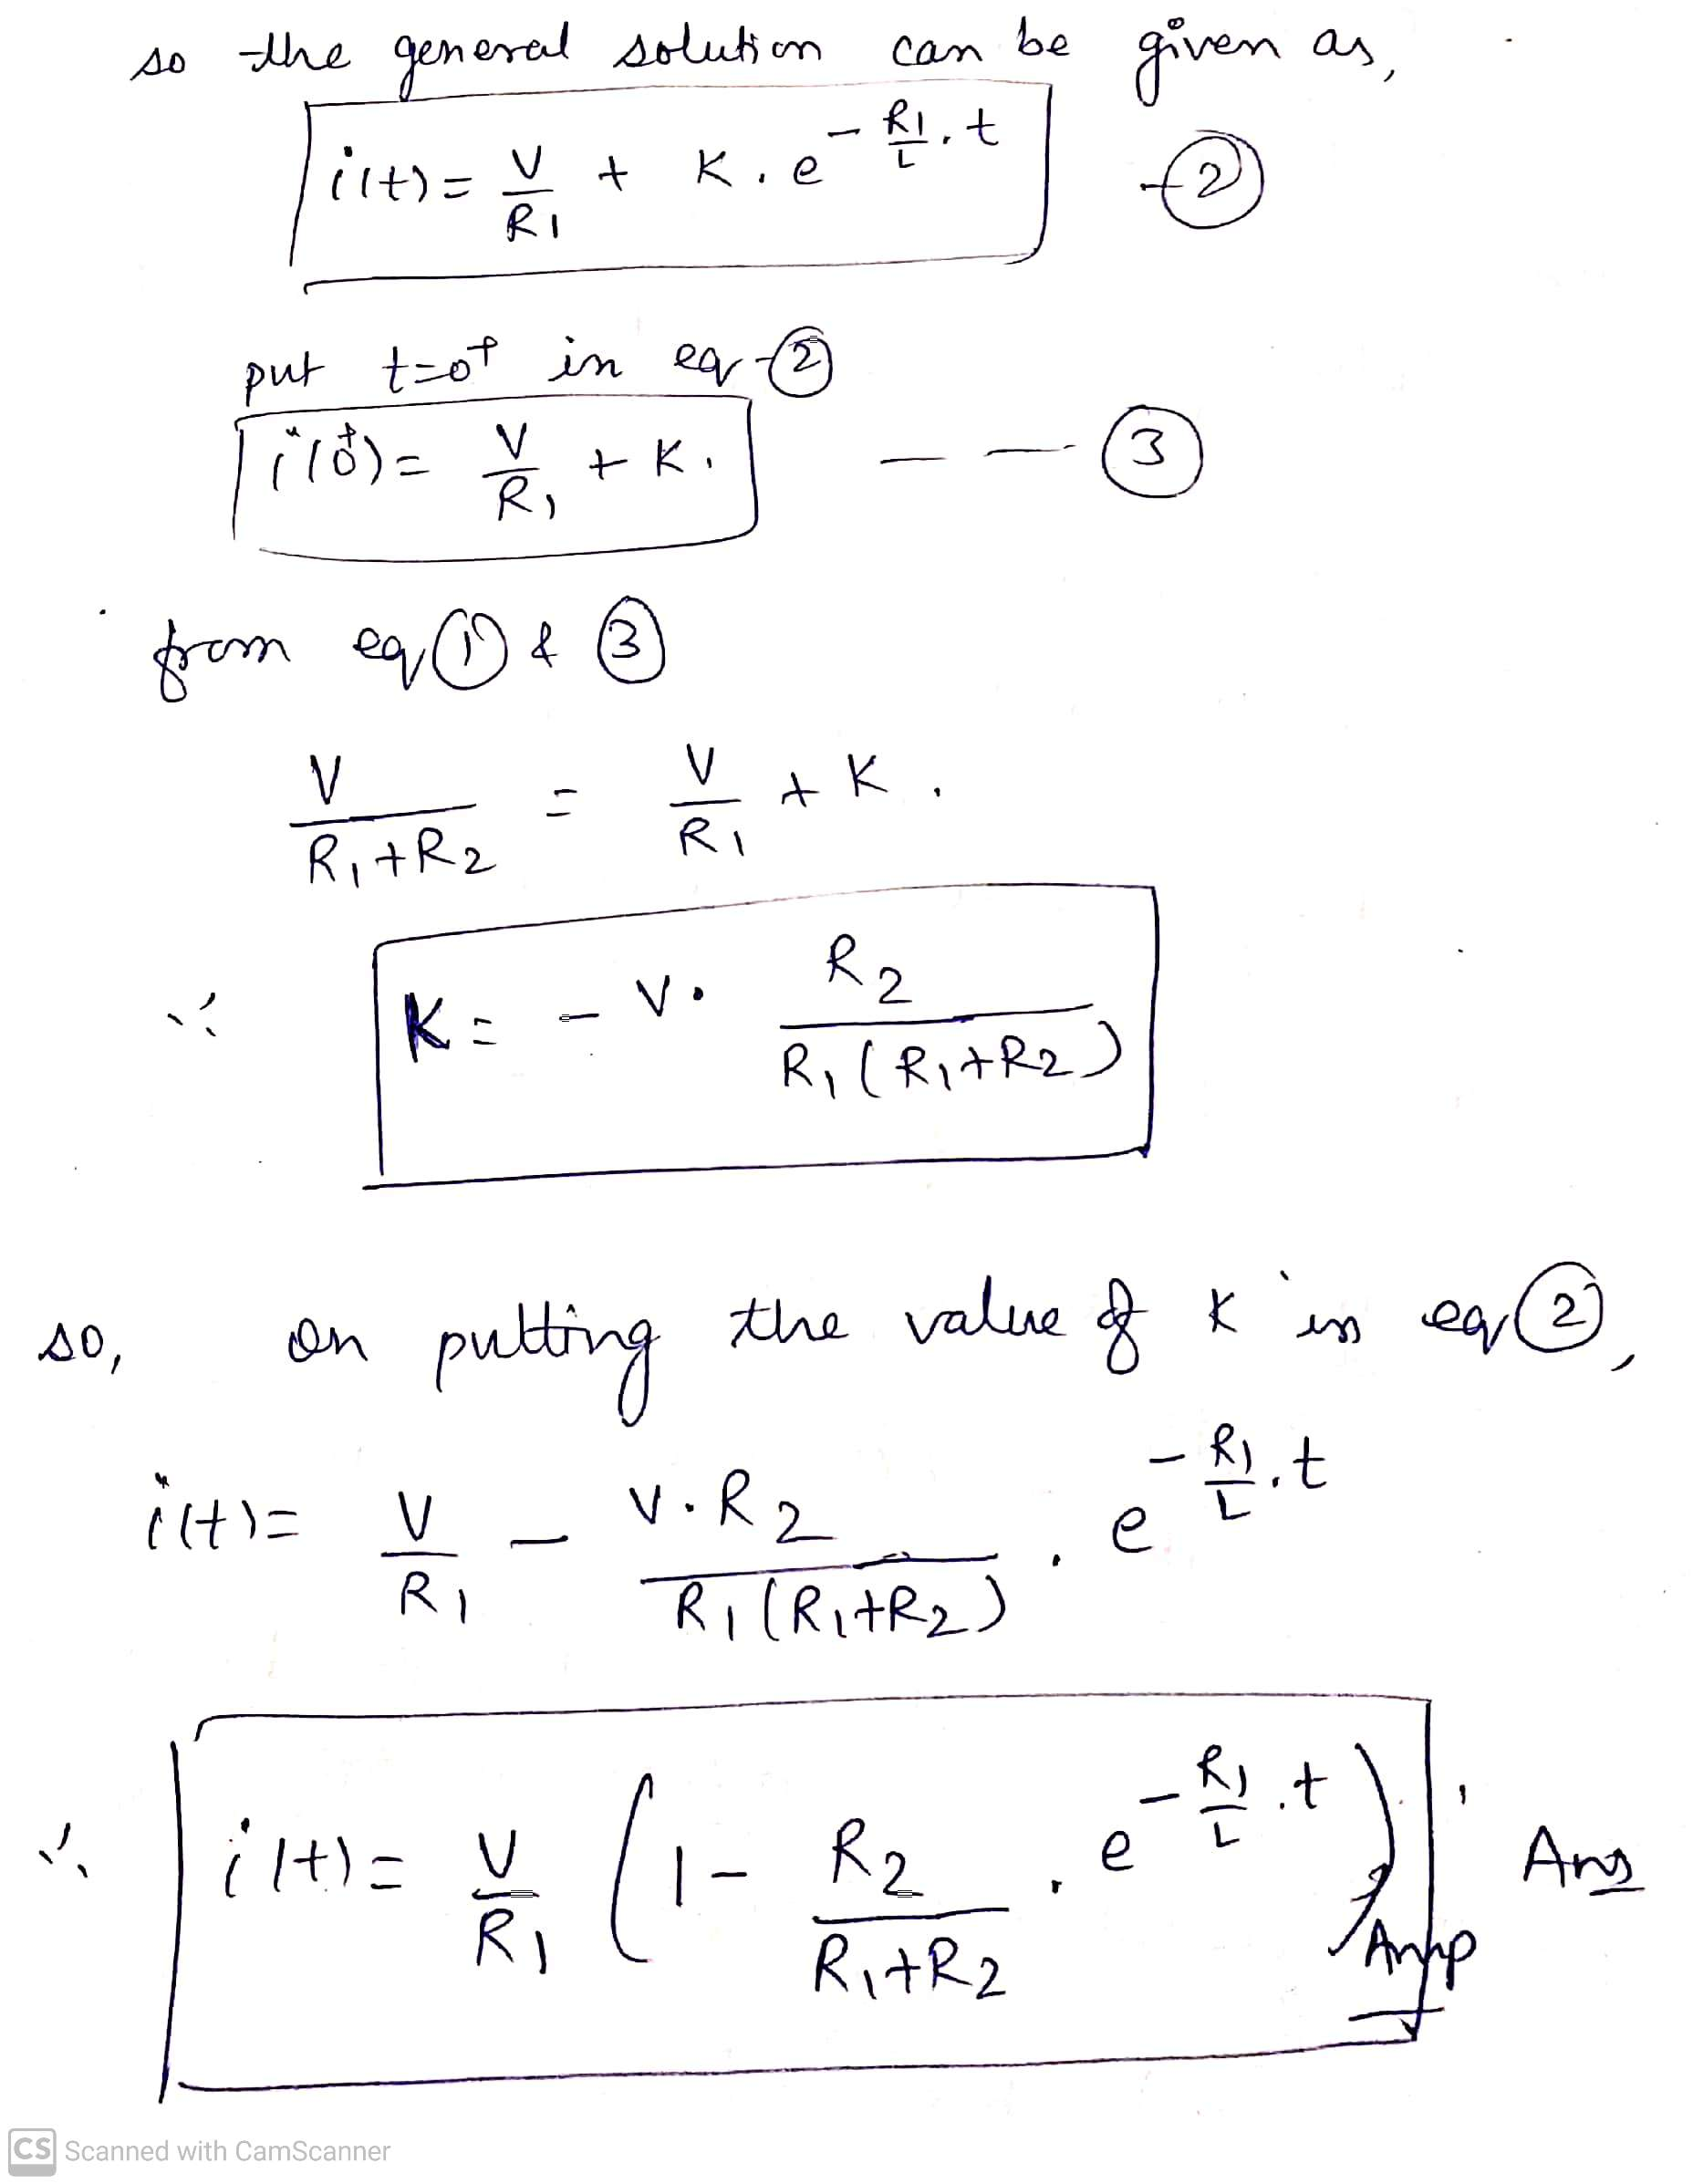 so the general solution can be given as,
i(t) = V/R1 + K . e^(- R1/L . t) - ②
put t=0⁺ in eq - ②
i(0⁺) = V/R1 + K. - - ③
from eq ① & ③
V/(R1+R2) = V/R1 + K.
∴ K = - V. R2/(R1(R1+R2))
so, on putting the value of K in eq ②,
i(t) = V/R1 - V.R2/(R1(R1+R2)) . e^(- R1/L . t)
∴ i(t) = V/R1 (1 - R2/(R1+R2) . e^(- R1/L . t)) Amp Ans
CS Scanned with CamScanner